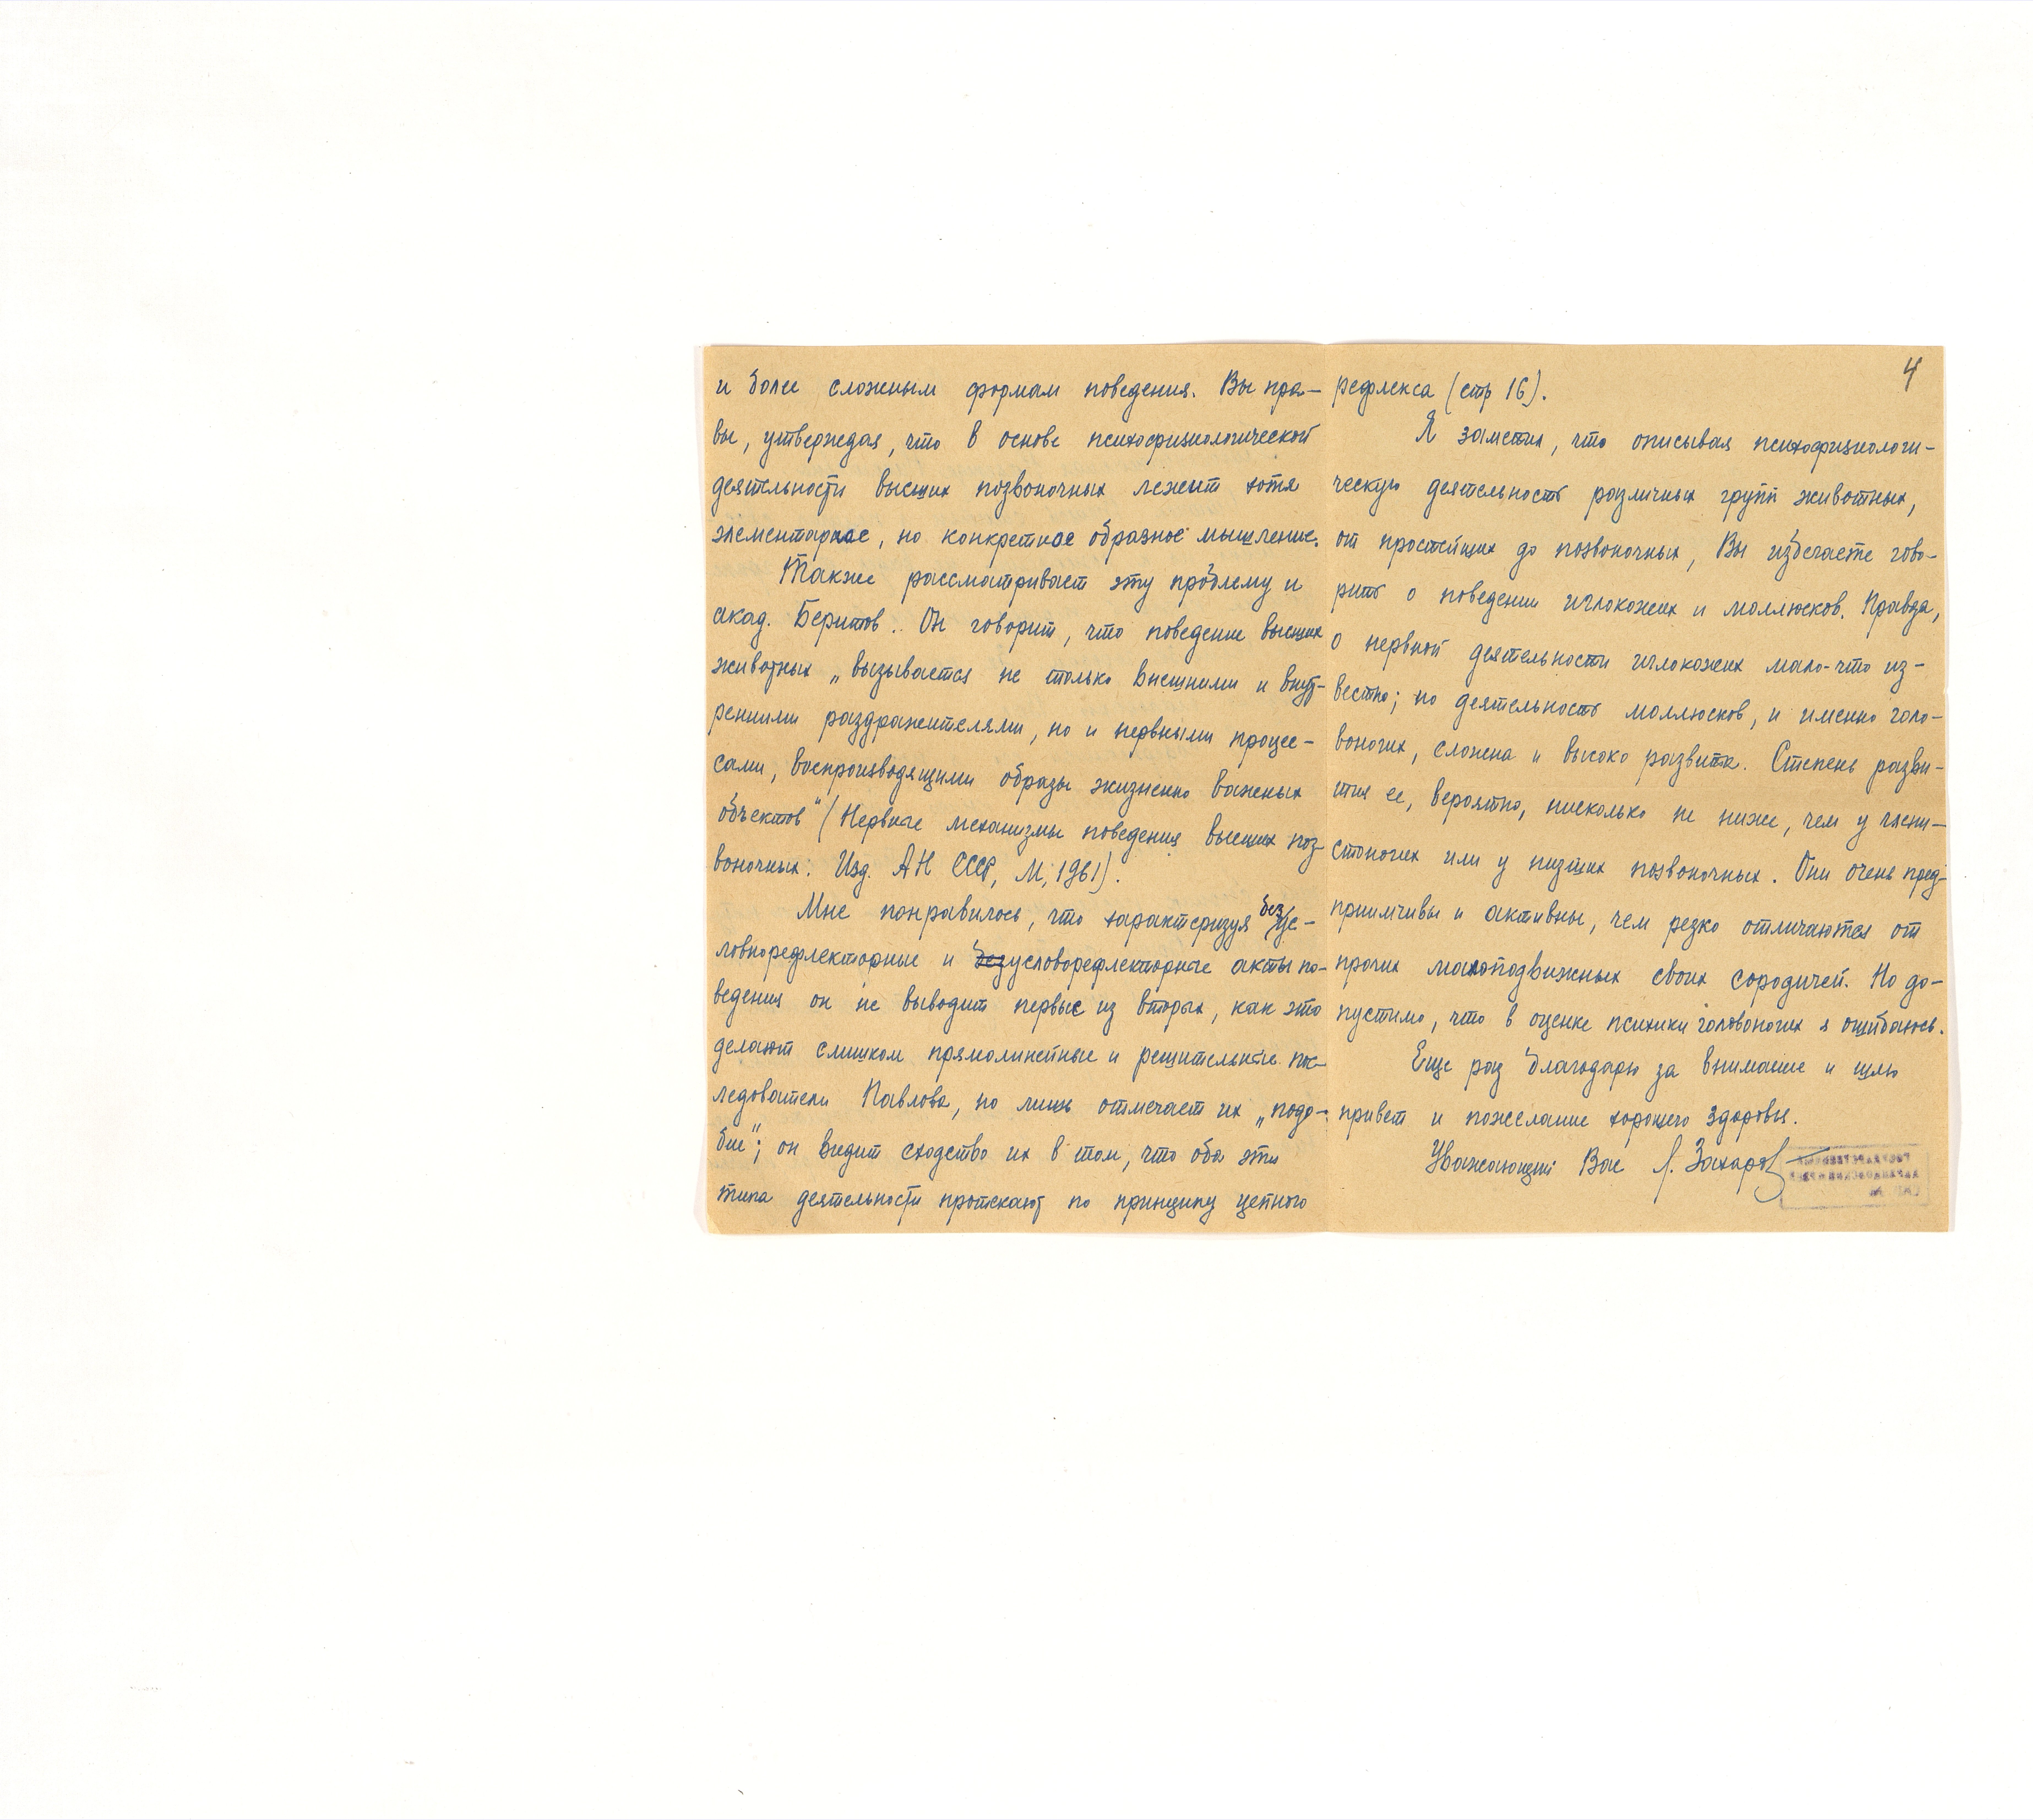 и более сложным формам поведения. Вы пра-
вы, утверждая, что в основе психофизиологической
деятельности высших позвоночных лежит хотя
элементарное, но конкретное образное мышление.
Также рассматривает эту проблему и
акад. Беритов. Он говорит, что поведение высших
животных „вызывается не только внешними и внут-
ренними раздражителями, но и нервными процес-
сами, воспроизводящими образы жизненно важных
объектов" (Нервные механизмы поведения высших поз-
воночных. Изд. АН СССР, М, 1961).
Мне понравилось, что характеризуя безус-
ловнорефлекторные и условорефлекторные акты по-
ведения он не выводит первые из вторых, как это
делают слишком прямолинейные и решительные пос-
ледователи Павлова, но лишь отмечает их „подо-
бие"; он видит сходство их в том, что оба эти
типа деятельности протекают по принципу цепного
4
рефлекса (стр 16).
Я заметил, что описывая психофизиологи-
ческую деятельность различных групп животных,
от простейших до позвоночных, Вы избегаете гово-
рить о поведении иглокожих и моллюсков. Правда,
о нервной деятельности иглокожих мало-что из-
вестно; но деятельность моллюсков, и именно голо-
воногих, сложна и высоко развита. Степень разви-
тия ее, вероятно, нисколько не ниже, чем у члени-
стоногих или у низших позвоночных. Они очень пред-
приимчивы и активны, чем резко отличаются от
прочих малоподвижных своих сородичей. Но до-
пустимо, что в оценке психики головоногих я ошибаюсь.
Еще раз благодарю за внимание и шлю
привет и пожелание хорошего здоровья.
Уважающий Вас Л. Захаров